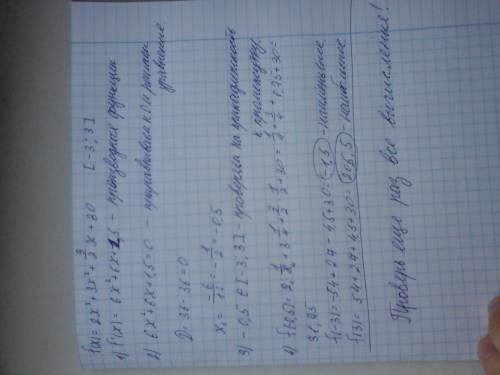 f(x)= 2x³+3x²+ 3/2 x+30 [-3;3]
1) f'(x)= 6x²+6x+1,5 - производная функции
2) 6x²+6x+1,5=0 - приравниваем к 0 и решаем
уравнение
D= 36-36=0
x₀= -6/12 = -1/2 = -0,5
3) -0,5 ∈ [-3;3] - проверили на принадлежность
к промежутку
31,25
f(-3)= -54+27-4,5+30= -1,5 - наименьшее
f(3)= 54+27+4,5+30= - наибольшее
Проверь еще раз все вычисления!